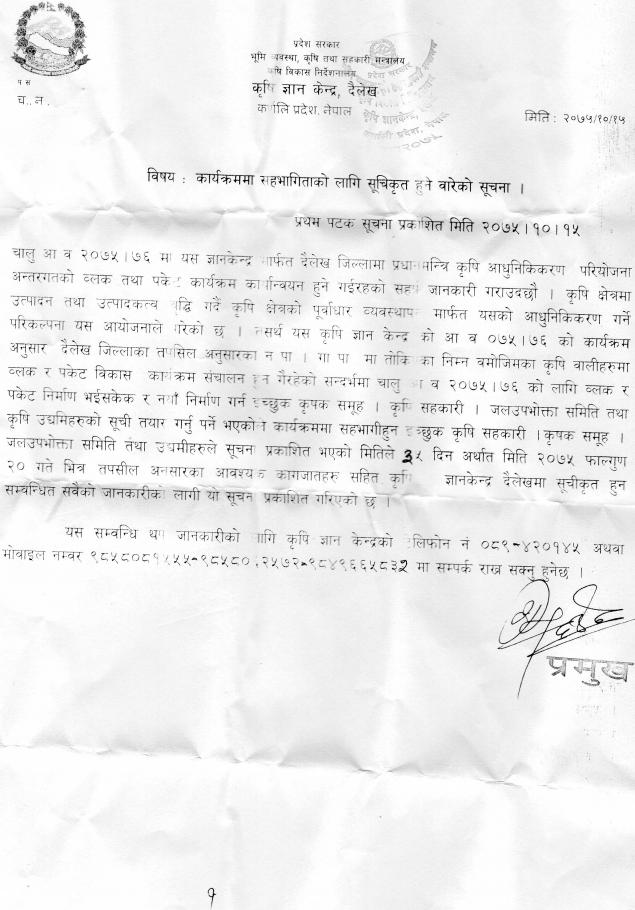 प्रदेश सरकार
भूमि व्यवस्था, कृषि तथा सहकारी मन्त्रालय
कृषि विकास निर्देशनालय
कृषि ज्ञान केन्द्र, दैलेख
कर्णाली प्रदेश, नेपाल
प स
च. न.
मिति : २०७५/१०/१५
विषय : कार्यक्रममा सहभागिताको लागि सूचिकृत हुने वारेको सूचना ।
प्रथम पटक सूचना प्रकाशित मिति २०७५।१०।१५
चालु आ व २०७५।७६ मा यस ज्ञानकेन्द्र मार्फत दैलेख जिल्लामा प्रधानमन्त्रि कृषि आधुनिकिकरण परियोजना
अन्तरगतको ब्लक तथा पकेट कार्यक्रम कार्यान्वयन हुने गईरहको सहर्ष जानकारी गराउदछौ । कृषि क्षेत्रमा
उत्पादन तथा उत्पादकत्व वृद्धि गर्दै कृषि क्षेत्रको पूर्वाधार व्यवस्थापन मार्फत यसको आधुनिकिकरण गर्ने
परिकल्पना यस आयोजनाले गरेको छ । तसर्थ यस कृषि ज्ञान केन्द्र को आ व ०७५।७६ को कार्यक्रम
अनुसार दैलेख जिल्लाका तपसिल अनुसारका न पा । गा पा मा तोकिएका निम्न वमोजिमका कृषि वालीहरुमा
ब्लक र पकेट विकास कार्यक्रम संचालन हुन गैरहेको सन्दर्भमा चालु आ व २०७५।७६ को लागि ब्लक र
पकेट निर्माण भईसकेक र नयाँ निर्माण गर्न इच्छुक कृषक समूह । कृषि सहकारी । जलउपभोक्ता समिति तथा
कृषि उद्यमिहरुको सूची तयार गर्नु पर्ने भएकोले कार्यक्रममा सहभागीहुन इच्छुक कृषि सहकारी ।कृषक समूह ।
जलउपभोक्ता समिति तथा उद्यमीहरुले सूचना प्रकाशित भएको मितिले ३५ दिन अर्थात मिति २०७५ फाल्गुण
२० गते भित्र तपसील अनसारका आवश्यक कागजातहरु सहित कृषि ज्ञानकेन्द्र दैलेखमा सूचीकृत हुन
सम्वन्धित सवैको जानकारीको लागी यो सूचना प्रकाशित गरिएको छ ।
यस सम्वन्धि थप जानकारीको लागि कृषि ज्ञान केन्द्रको टेलिफोन नं ०८९-४२०१४५ अथवा
मोवाइल नम्वर ९८५८०८१५५५-९८५८० २५७२-९८४९६६५८३२ मा सम्पर्क राख्न सक्नु हुनेछ ।
प्रमुख
१